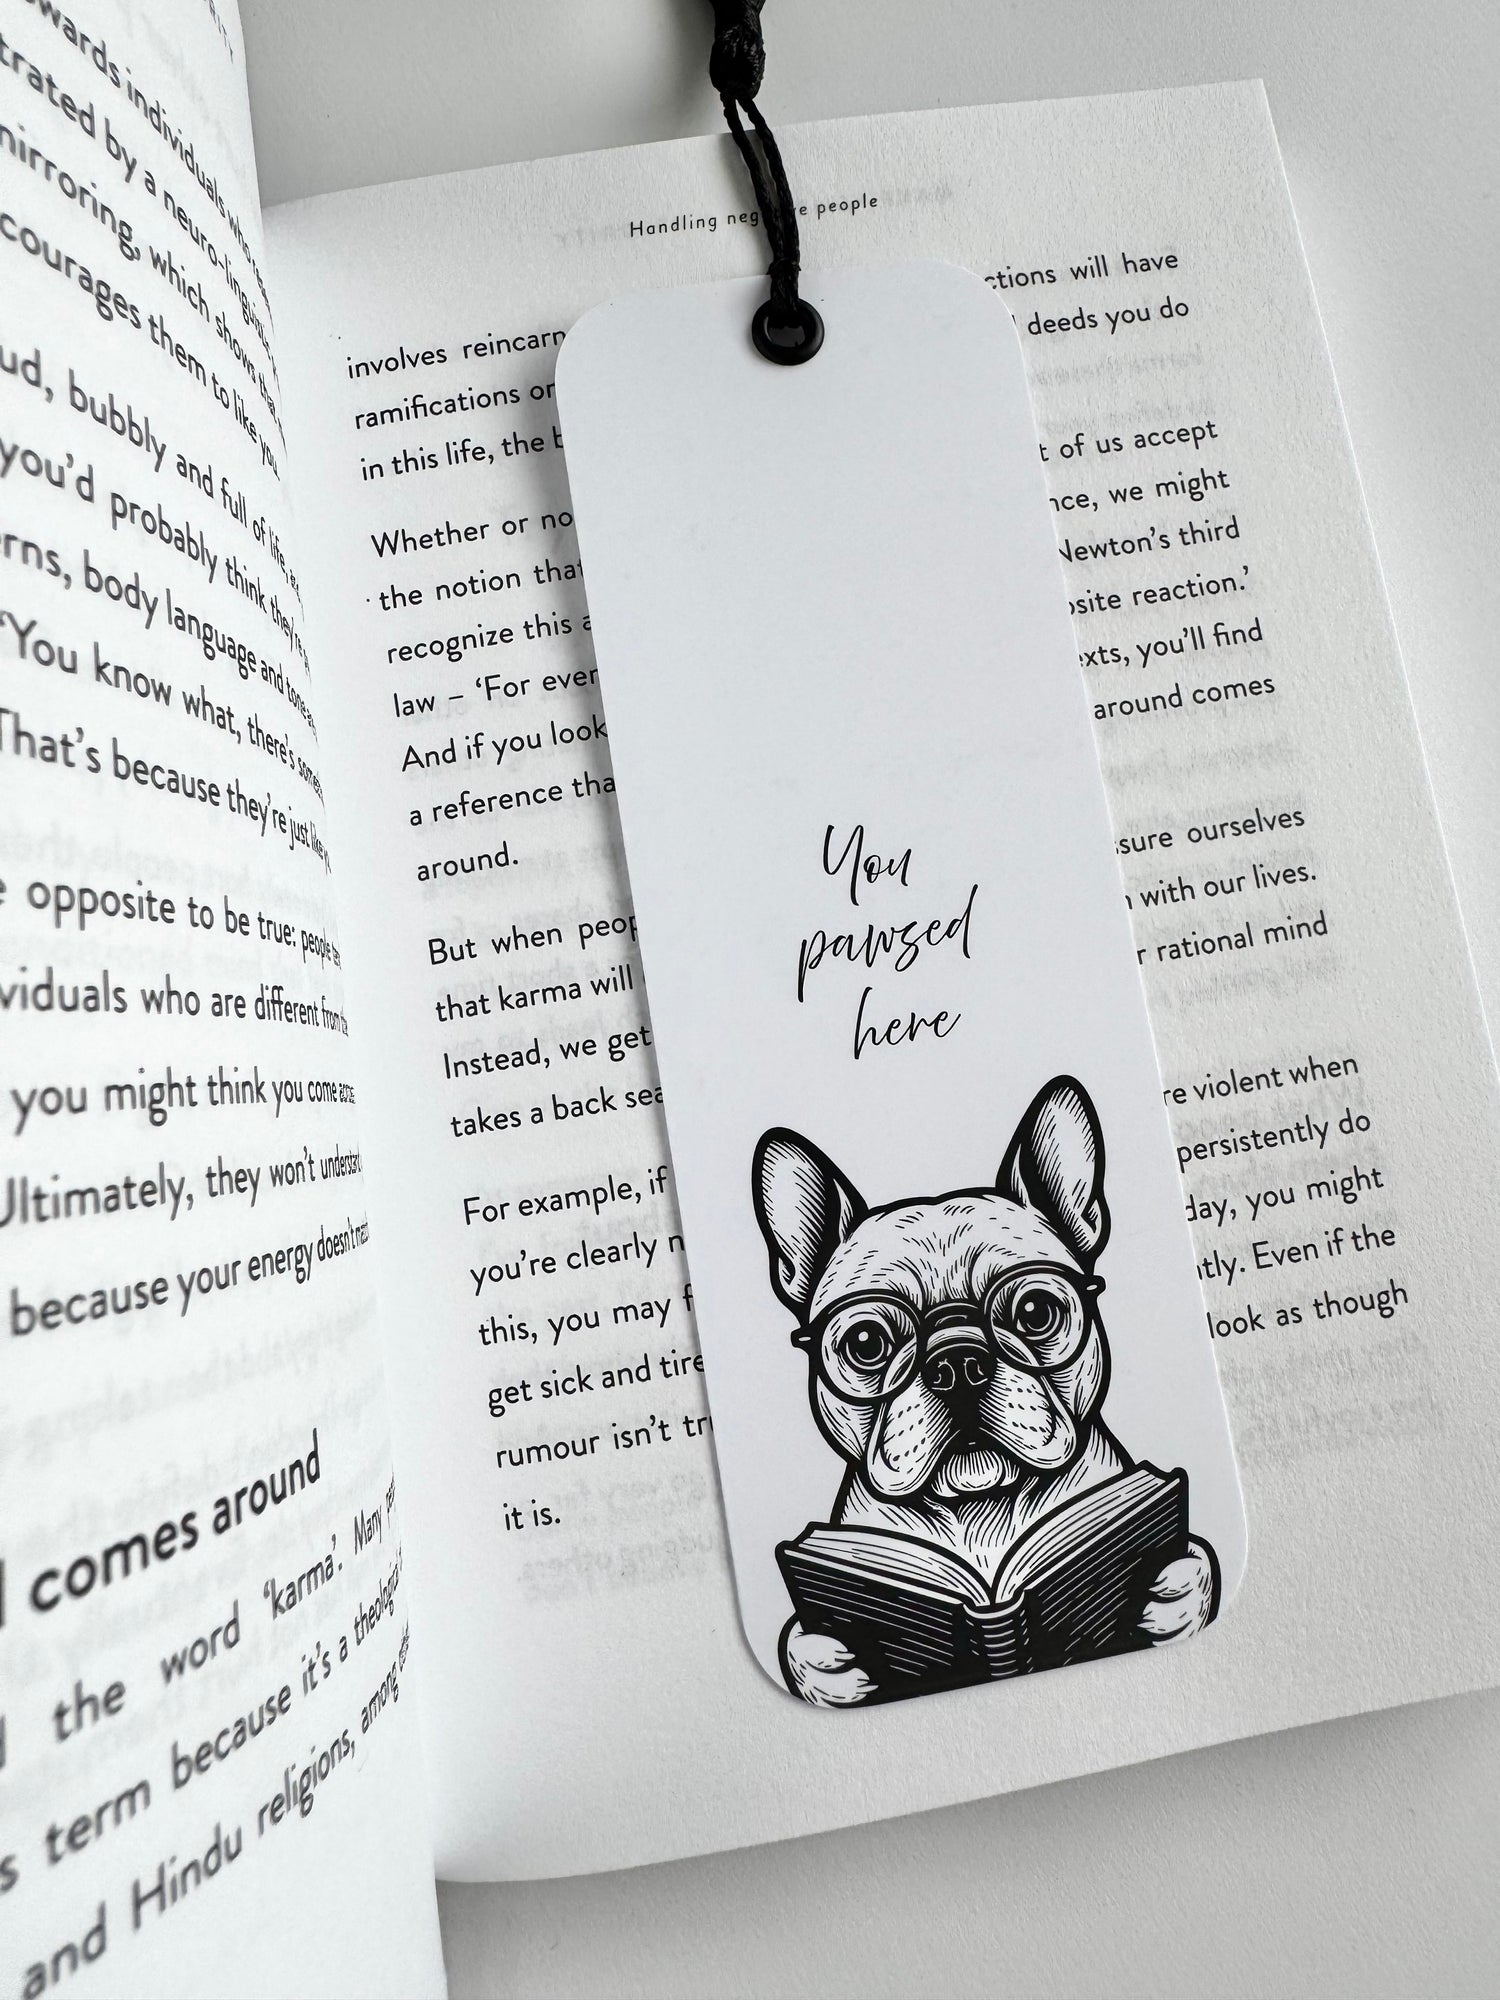 wards individuals who
trated by a neuro-linguistic
mirroring, which shows that
courages them to like you.
ud, bubbly and full of life,
you'd probably think they're
erns, body language and tone
'You know what, there's
That's because they're just like
opposite to be true: people
viduals who are different from
you might think you come across
Ultimately, they won't understand
because your energy doesn't
comes around
the word 'karma'. Many
s term because it's a theological
and Hindu religions, among
Handling neg e people
involves reincarn ctions will have
ramifications or deeds you do
in this life, the
Whether or no t of us accept
the notion that nce, we might
recognize this a Newton's third
law – 'For ever osite reaction.'
And if you look exts, you'll find
a reference tha around comes
around.
But when peop sure ourselves
that karma will with our lives.
Instead, we get r rational mind
takes a back sea
For example, if re violent when
you're clearly n persistently do
this, you may f day, you might
get sick and tire ntly. Even if the
rumour isn't tr look as though
it is.
You
pawsed
here